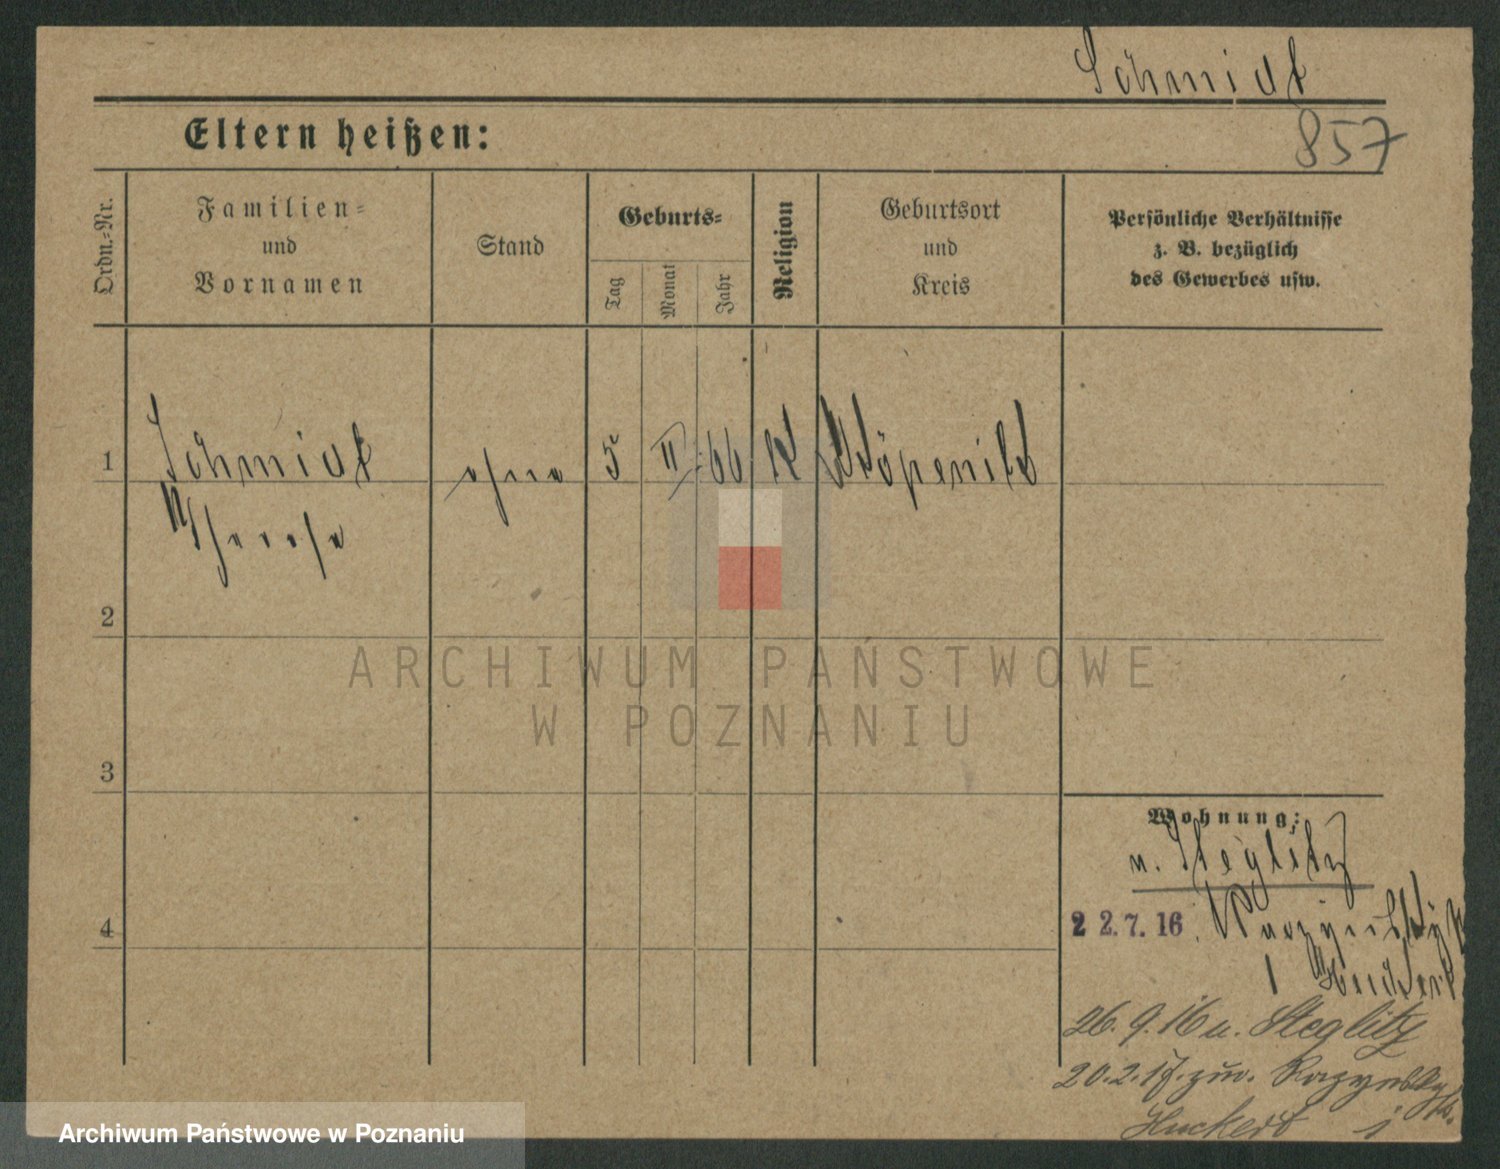 Schmidt
857
Eltern heißen:
Ordn.-Nr.
Familien-
und
Vornamen
Stand
Geburts-
Tag
Monat
Jahr
Religion
Geburtsort
und
Kreis
Persönliche Verhältnisse
z. B. bezüglich
des Gewerbes usw.
1 Schmidt ohne 5 II 66 K Köpenick
Therese
2
ARCHIWUM PAŃSTWOWE
W POZNANIU
3
Wohnung:
n. Steglitz
4
22.7.16.
1
26.9.16 n. Steglitz
20.2.17. zw.
Huckert 1
Archiwum Państwowe w Poznaniu